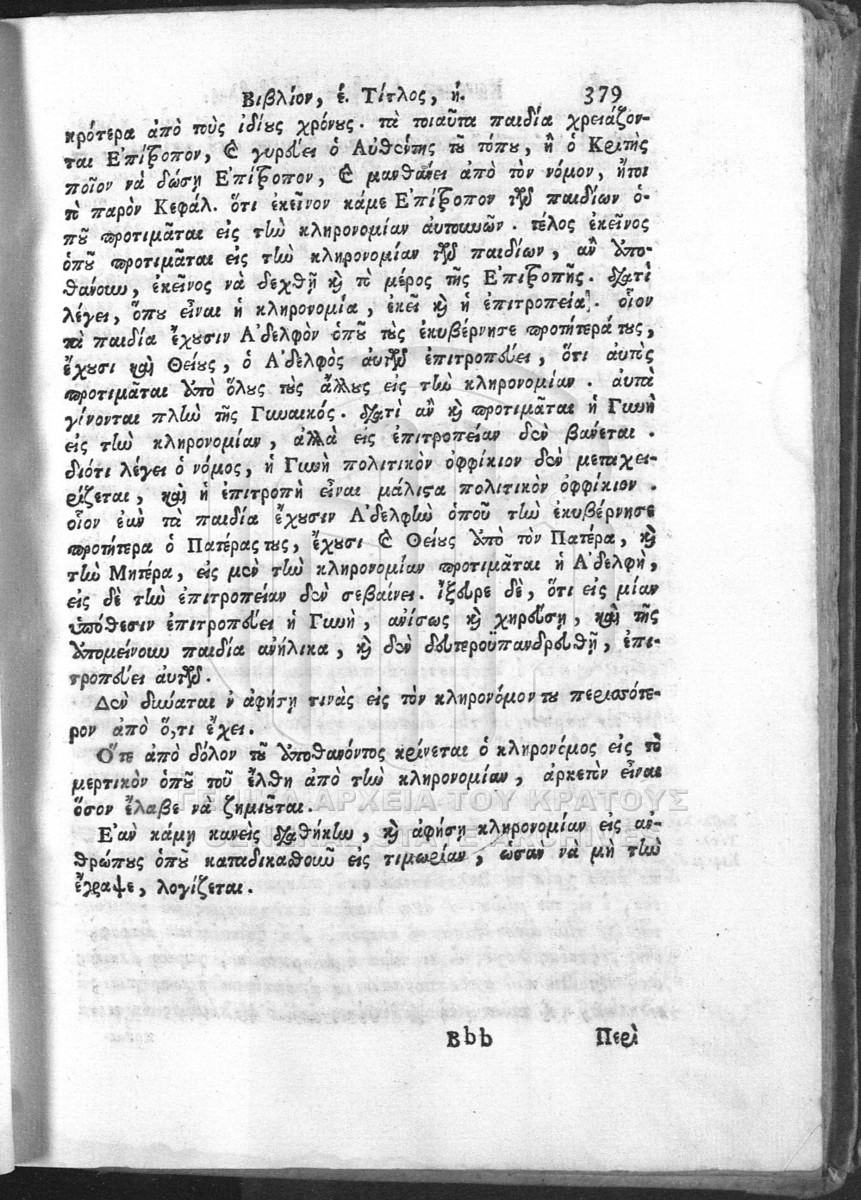 Βιβλίον, έ. Τίτλος, ή. 379
κρότερα ἀπὸ τοὺς ἰδίους χρόνους. τὰ τοιαῦτα παιδία χρειάζον-
ται Ἐπίτροπον, καὶ γυρεύει ὁ Αὐθέντης τοῦ τόπου, ἢ ὁ Κριτὴς
ποῖον νὰ δώσῃ Ἐπίτροπον, καὶ μανθάνει ἀπὸ τὸν νόμον, ἤτοι
τὸ παρὸν Κεφάλ. ὅτι ἐκεῖνον κάμε Ἐπίτροπον τῶν παιδίων ὁ-
ποῦ προτιμᾶται εἰς τὴν κληρονομίαν αὐτουνῶν. τέλος ἐκεῖνος
ὁποῦ προτιμᾶται εἰς τὴν κληρονομίαν τῶν παιδίων, ἂν ἀπο-
θάνουν, ἐκεῖνος νὰ δεχθῇ καὶ τὸ μέρος τῆς Ἐπιτροπῆς. διατὶ
λέγει, ὅπου εἶναι ἡ κληρονομία, ἐκεῖ καὶ ἡ ἐπιτροπεία. οἷον
τὰ παιδία ἔχουσιν Ἀδελφὸν ὁποῦ τοὺς ἐκυβέρνησε προτήτερά τους,
ἔχουσι καὶ Θείους, ὁ Ἀδελφὸς αὐτῶν ἐπιτροπεύει, ὅτι αὐτὸς
προτιμᾶται ἀπὸ ὅλους τοὺς ἄλλους εἰς τὴν κληρονομίαν. αὐτὰ
γίνονται πλὴν τῆς Γυναικός. διατὶ ἂν καὶ προτιμᾶται ἡ Γυνὴ
εἰς τὴν κληρονομίαν, ἀλλὰ εἰς ἐπιτροπείαν δὲν βάνεται.
διότι λέγει ὁ νόμος, ἡ Γυνὴ πολιτικὸν ὀφφίκιον δὲν μεταχει-
ρίζεται, καὶ ἡ ἐπιτροπὴ εἶναι μάλιστα πολιτικὸν ὀφφίκιον.
οἷον ἐὰν τὰ παιδία ἔχουσιν Ἀδελφὴν ὁποῦ τὴν ἐκυβέρνησε
προτήτερα ὁ Πατέρας τους, ἔχουσι καὶ Θείους ἀπὸ τὸν Πατέρα, καὶ
τὴν Μητέρα, εἰς μὲν τὴν κληρονομίαν προτιμᾶται ἡ Ἀδελφὴ,
εἰς δὲ τὴν ἐπιτροπείαν δὲν σεβαίνει. ἴξευρε δὲ, ὅτι εἰς μίαν
ὑπόθεσιν ἐπιτροπεύει ἡ Γυνὴ, ἀνίσως καὶ χηρεύσῃ, καὶ τῆς
ἀπομείνουν παιδία ἀνήλικα, καὶ δὲν δευτεροϋπανδρευθῇ, ἐπι-
τροπεύει αὐτῶν.
Δὲν δύναται ν ἀφήσῃ τινὰς εἰς τὸν κληρονόμον του περισσότε-
ρον ἀπὸ ὅ,τι ἔχει.
Ὅτε ἀπὸ δόλον τοῦ ἀποθανόντος κρίνεται ὁ κληρονόμος εἰς τὸ
μερτικὸν ὁποῦ τοῦ ἔλθῃ ἀπὸ τὴν κληρονομίαν, ἀρκετὸν εἶναι
ὅσον ἔλαβε νὰ ζημιοῦται.
Ἐὰν κάμῃ κανεὶς διαθήκην, καὶ ἀφήσῃ κληρονομίαν εἰς ἀν-
θρώπους ὁποῦ καταδικαθοῦν εἰς τιμωρίαν, ὡσὰν νὰ μὴ τὴν
ἔγραψε, λογίζεται.
Bbb Περὶ
ΓΕΝΙΚΑ ΑΡΧΕΙΑ ΤΟΥ ΚΡΑΤΟΥΣ
GENERAL STATE ARCHIVES